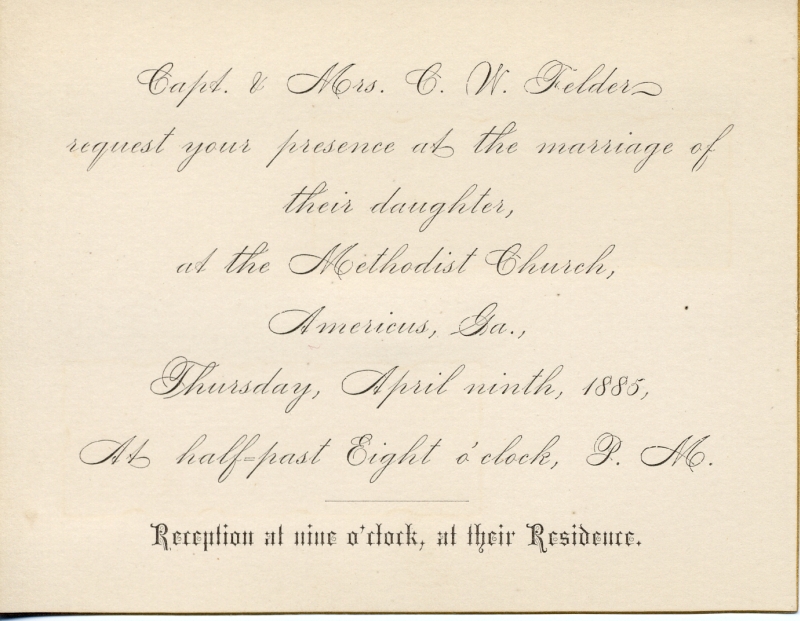 Capt. & Mrs. C. W. Felder
request your presence at the marriage of
their daughter,
at the Methodist Church,
Americus, Ga.,
Thursday, April ninth, 1885,
At half-past Eight o'clock, P. M.
Reception at nine o'clock, at their Residence.